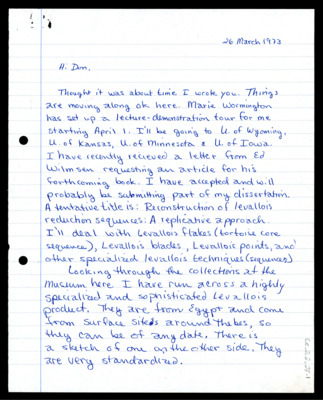 26 March 1973
Hi Don,
Thought it was about time I wrote you. Things
are moving along ok here. Marie Wormington
has set up a lecture-demonstration tour for me
starting April 1. I'll be going to U. of Wyoming,
U. of Kansas, U. of Minnesota & U. of Iowa.
I have recently recieved a letter from Ed
Wilmsen requesting an article for his
forthcoming book. I have accepted and will
probably be submitting part of my dissertation.
A tentative title is: Reconstruction of levallois
reduction sequences: A replicative approach.
I'll deal with Levallois flakes (tortoise core
sequence), Levallois blades, Levallois points, and
other specialized levallois techniques (sequences)
Looking through the collections at the
Museum here I have run across a highly
specialized and sophisticated Levallois
product. They are from Egypt and come
from surface sites around Thebes, so
they can be of any date. There is
a sketch of one on the other side. They
are very standardized.